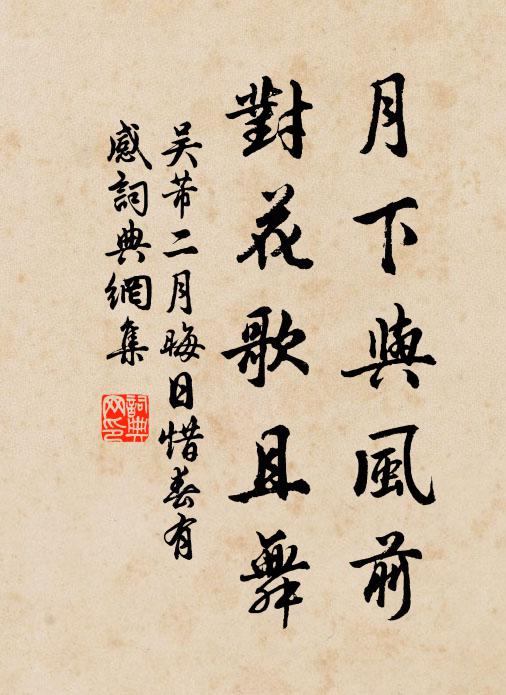 月下與風前
對花歌且舞
吴芾二月晦日惜春有
感詞典網集
詞典
网印